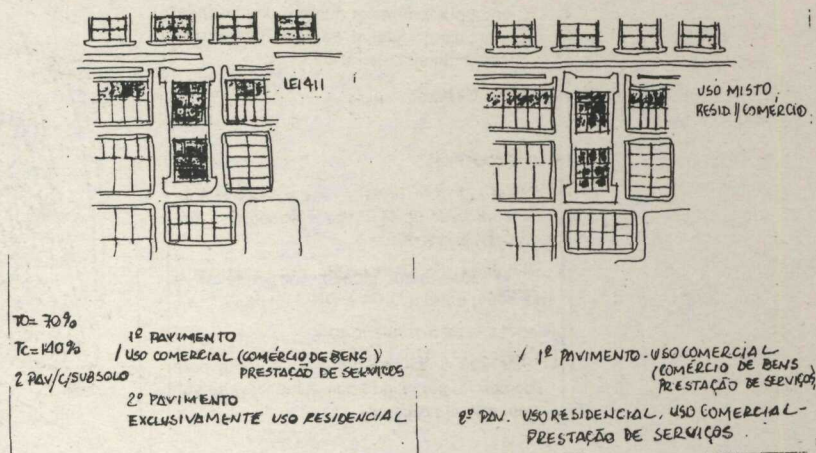 LEI 411
USO MISTO
RESID//COMÉRCIO.
TO= 70%
TC=140%
2 PAV/C/SUBSOLO
1º PAVIMENTO
/ USO COMERCIAL (COMÉRCIO DE BENS )
PRESTAÇÃO DE SERVIÇOS
2º PAVIMENTO
EXCLUSIVAMENTE USO RESIDENCIAL
/ 1º PAVIMENTO - USO COMERCIAL
(COMÉRCIO DE BENS
PRESTAÇÃO DE SERVIÇOS)
2º PAV. USO RESIDENCIAL, USO COMERCIAL -
PRESTAÇÃO DE SERVIÇOS.